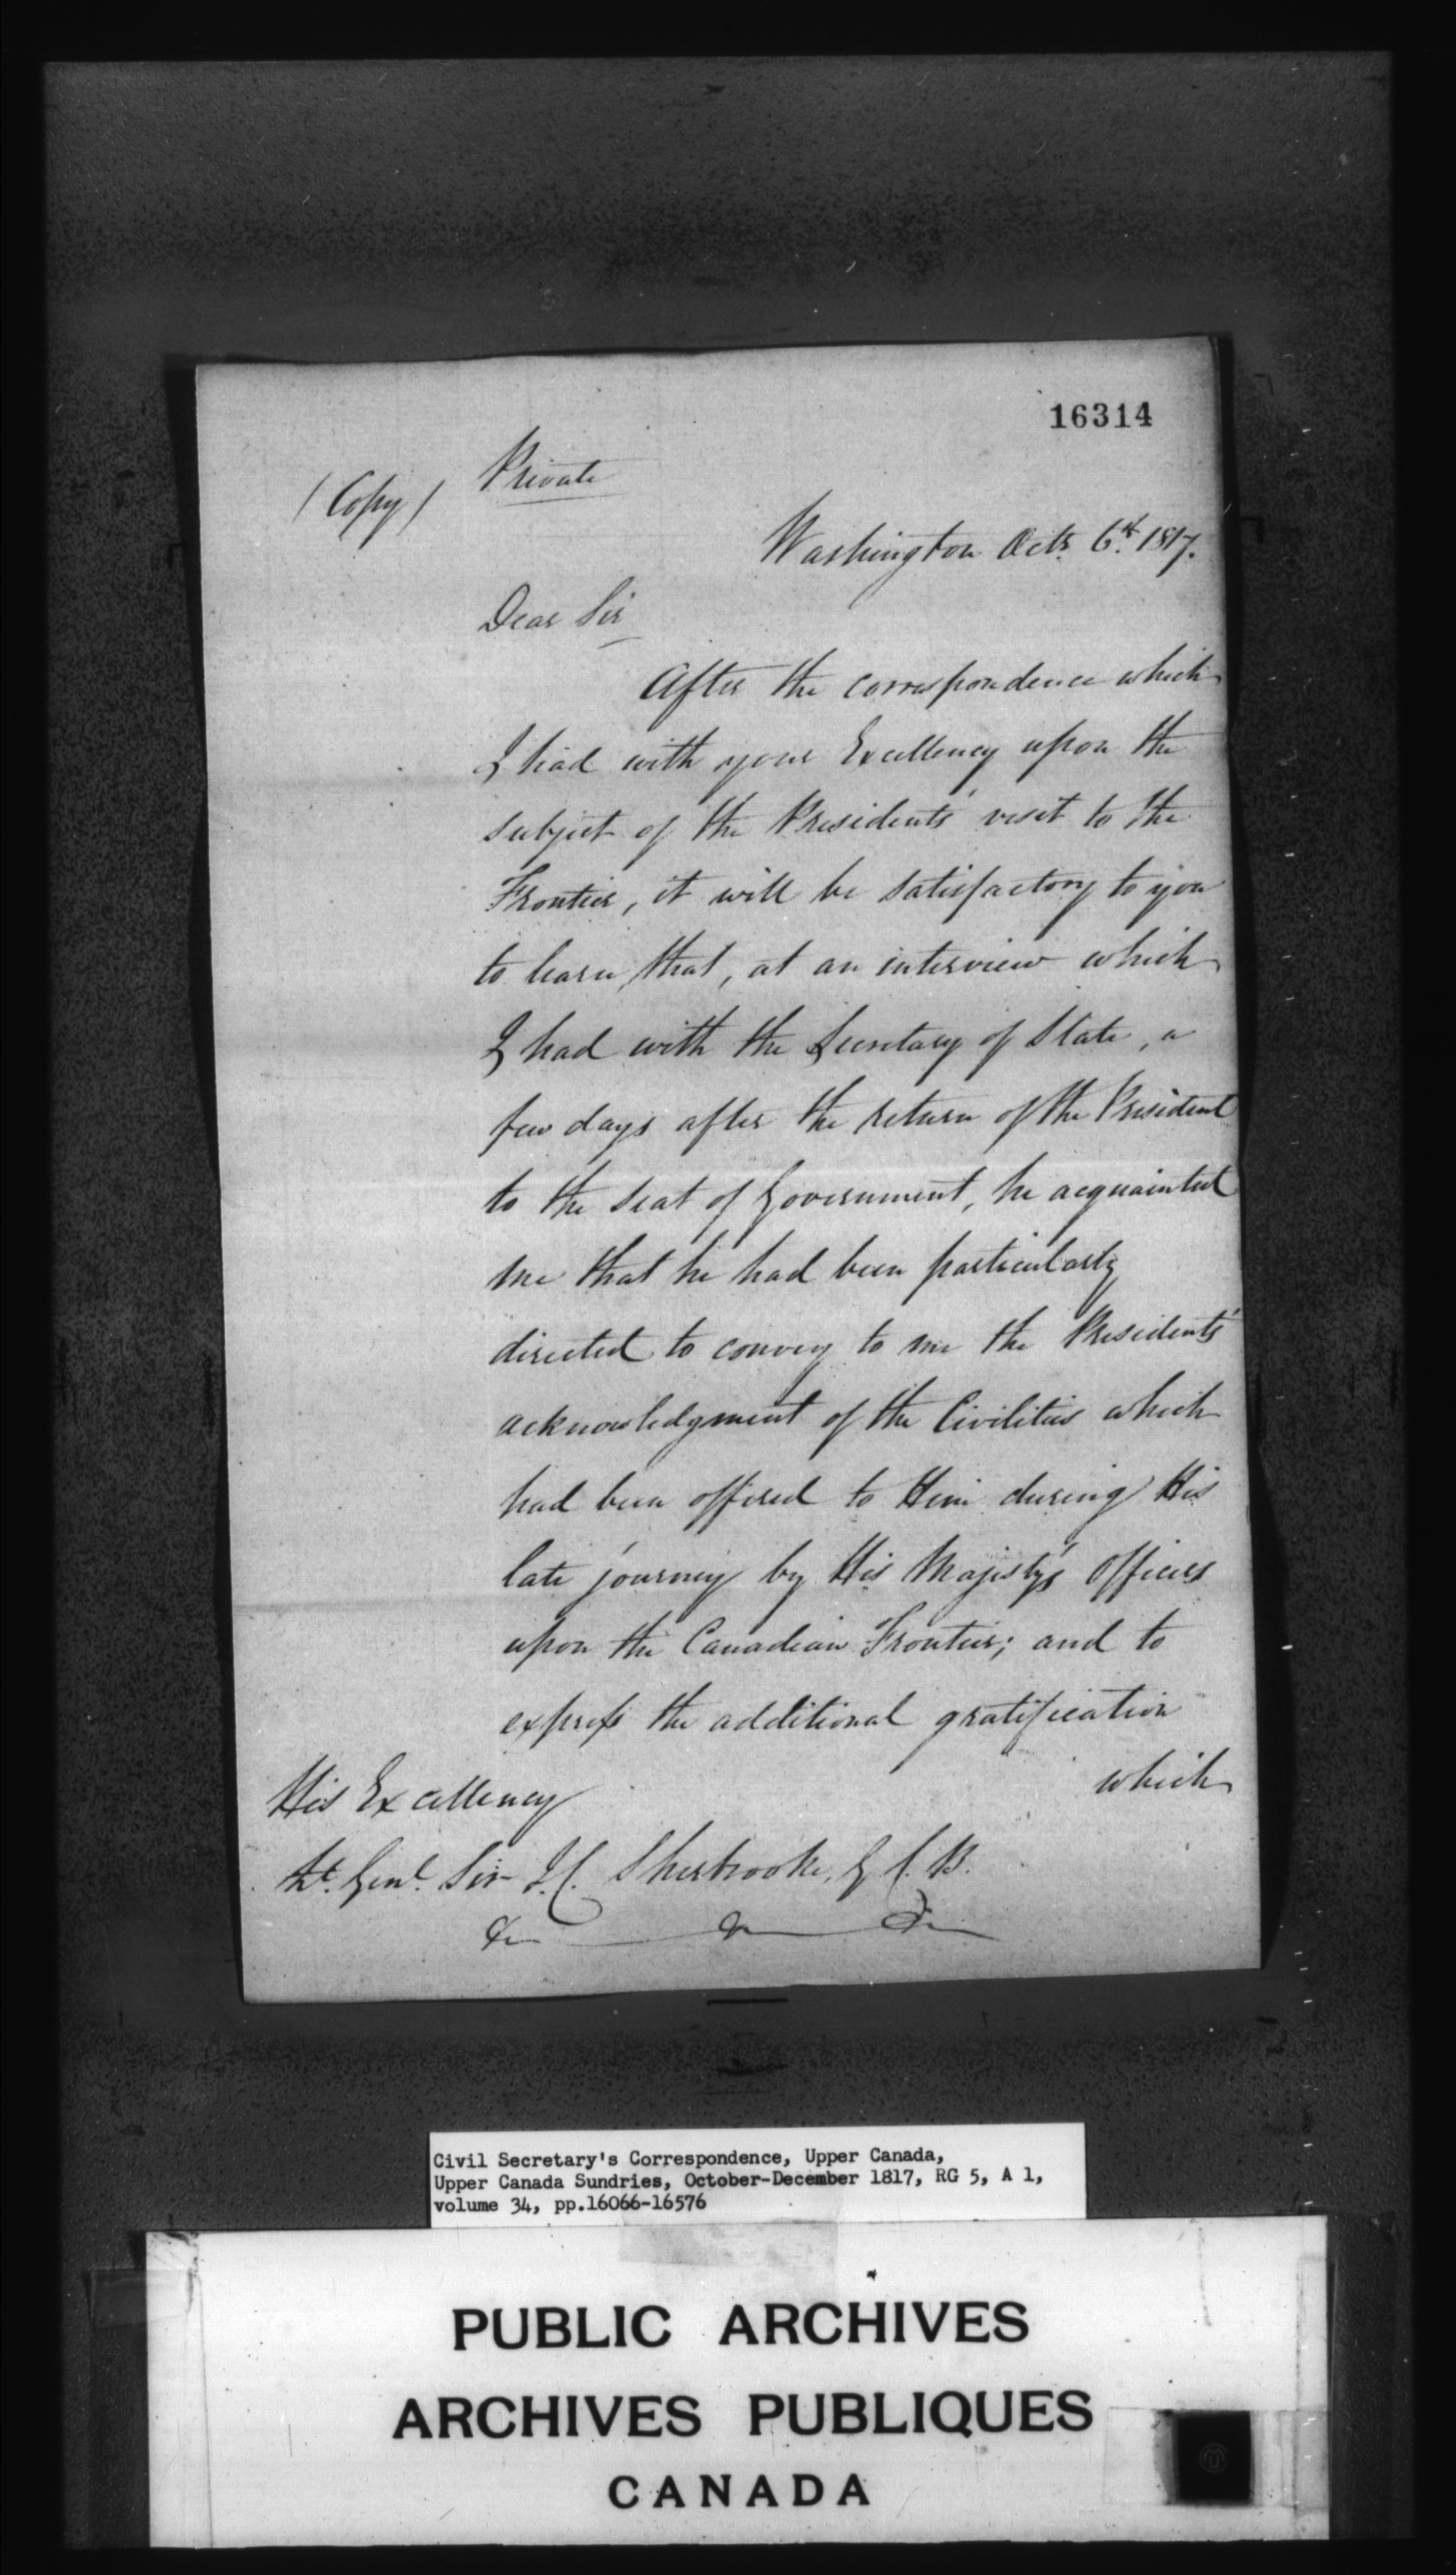 16314
(Copy) Private
Washington Octr. 6th. 1817.
Dear Sir
After the correspondence which
I had with your Excellency upon the
subject of the Presidents' visit to the
Frontier, it will be satisfactory to you
to learn, that, at an interview which
I had with the Secretary of State, a
few days after the return of the President
to the seat of Government, he acquainted
me that he had been particularly
directed to convey to me the Presidents'
acknowledgment of the Civilities which
had been offered to Him during His
late journey by His Majesty's Officers
upon the Canadian Frontier; and to
express the additional gratification
which
His Excellency
Lt. Genl. Sir J.C. Sherbrooke, G.C.B.
&c &c &c
Civil Secretary's Correspondence, Upper Canada,
Upper Canada Sundries, October-December 1817, RG 5, A 1,
volume 34, pp.16066-16576
PUBLIC ARCHIVES
ARCHIVES PUBLIQUES
CANADA